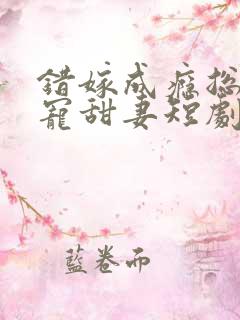 錯嫁成癮總
寵甜妻短劇
藍卷而